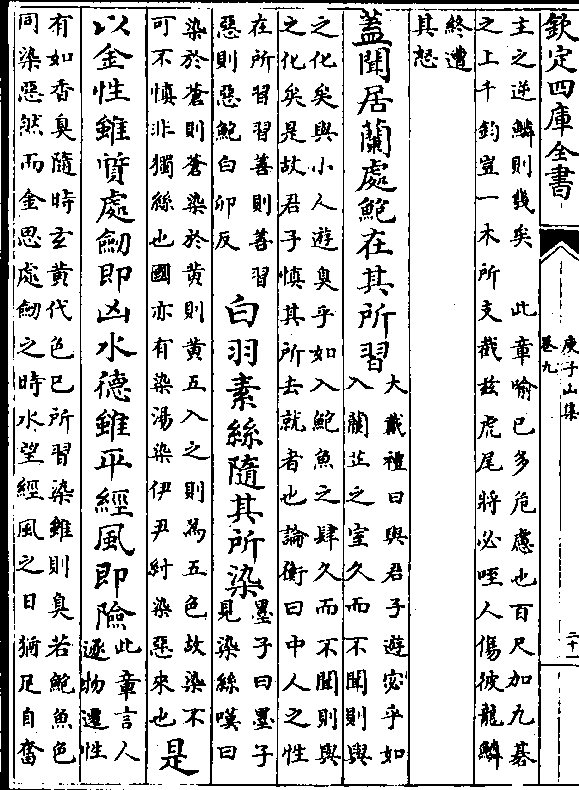 欽定四庫全書
庚子山集
卷九
二十一
主之逆鱗則幾矣　此章喻已多危慮也百尺加九碁
之上千鈞豈一木所支截玆虎尾將必咥人傷彼龍鱗
終遭
其怒
蓋聞居蘭處鮑在其所習
大戴禮曰與君子遊宓乎如
入蘭芷之室久而不聞則與
之化矣與小人遊臭乎如入鮑魚之肆久而不聞則與
之化矣是故君子慎其所去就者也論衡曰中人之性
在所習習善則善習
惡則惡鮑白卯反
白羽素絲隨其所染
墨子曰墨子
見染絲嘆曰
染於蒼則蒼染於黄則黄五入之則為五色故染不
可不慎非獨絲也國亦有染湯染伊尹紂染惡來也
是
以金性雖質處劒即凶水德雖平經風即險
此章言人
逐物遷性
有如香臭隨時玄黄代色已所習染雖則臭若鮑魚色
同染惡然而金思處劒之時水望經風之日猶足自奮